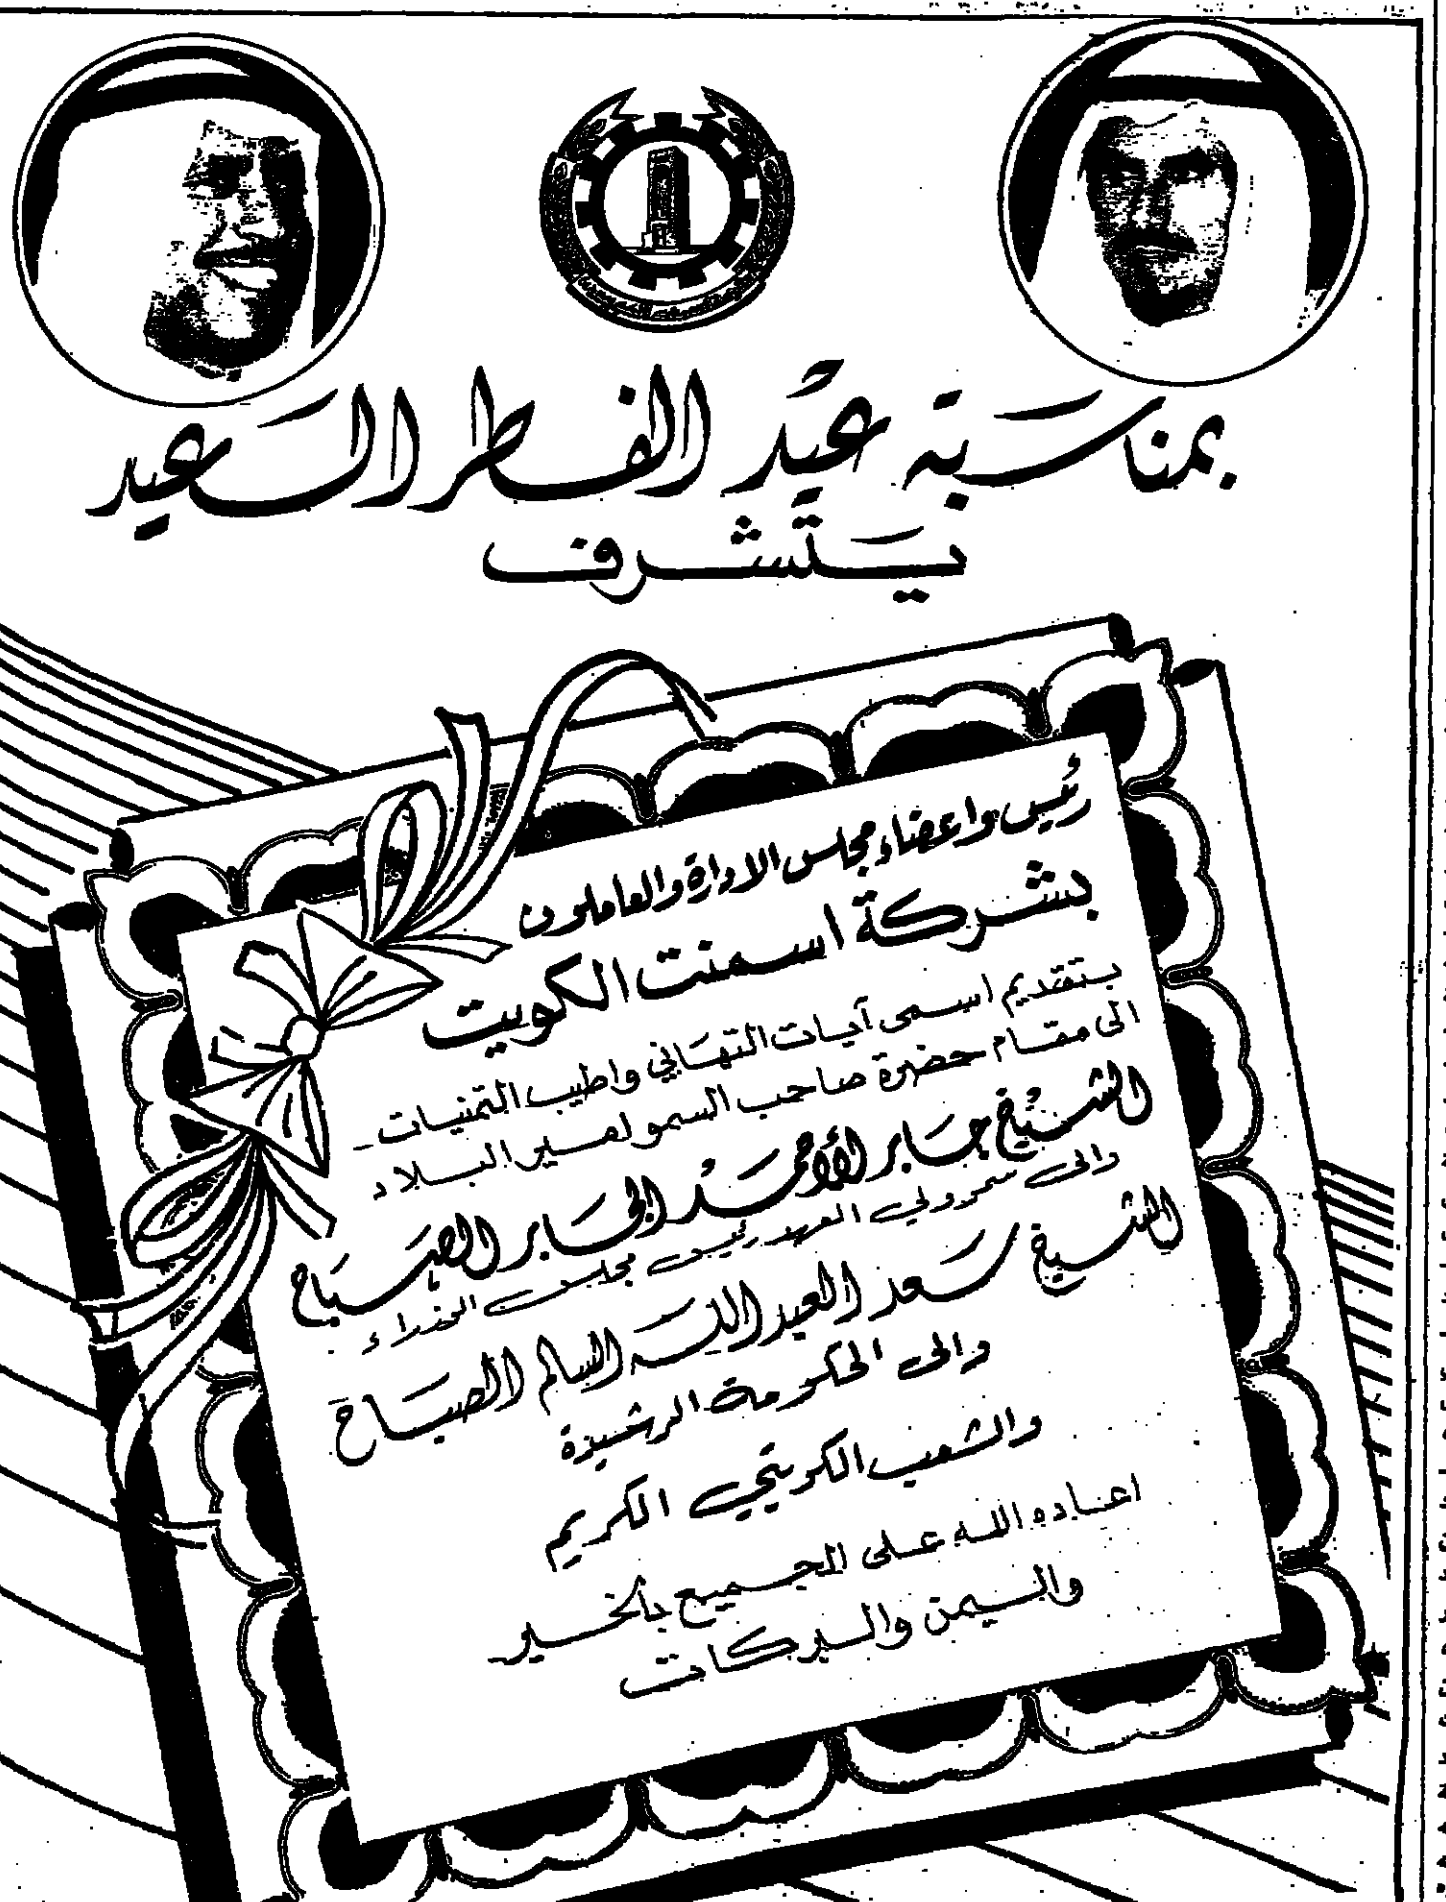 بمناسبة عيد الفطر السعيد
يتشرف
رئيس واعضاء مجلس الادارة والعاملون
بشركة اسمنت الكويت
بتقديم اسمى آيات التهاني واطيب التمنيات
الى مقام حضرة صاحب السمو امير البلاد
الشيخ جابر الأحمد الجابر الصباح
والى سمو ولي العهد رئيس مجلس الوزراء
الشيخ سعد العبد الله السالم الصباح
والى الحكومة الرشيدة
والشعب الكويتي الكريم
اعاده الله على الجميع بالخير
واليمن والبركات